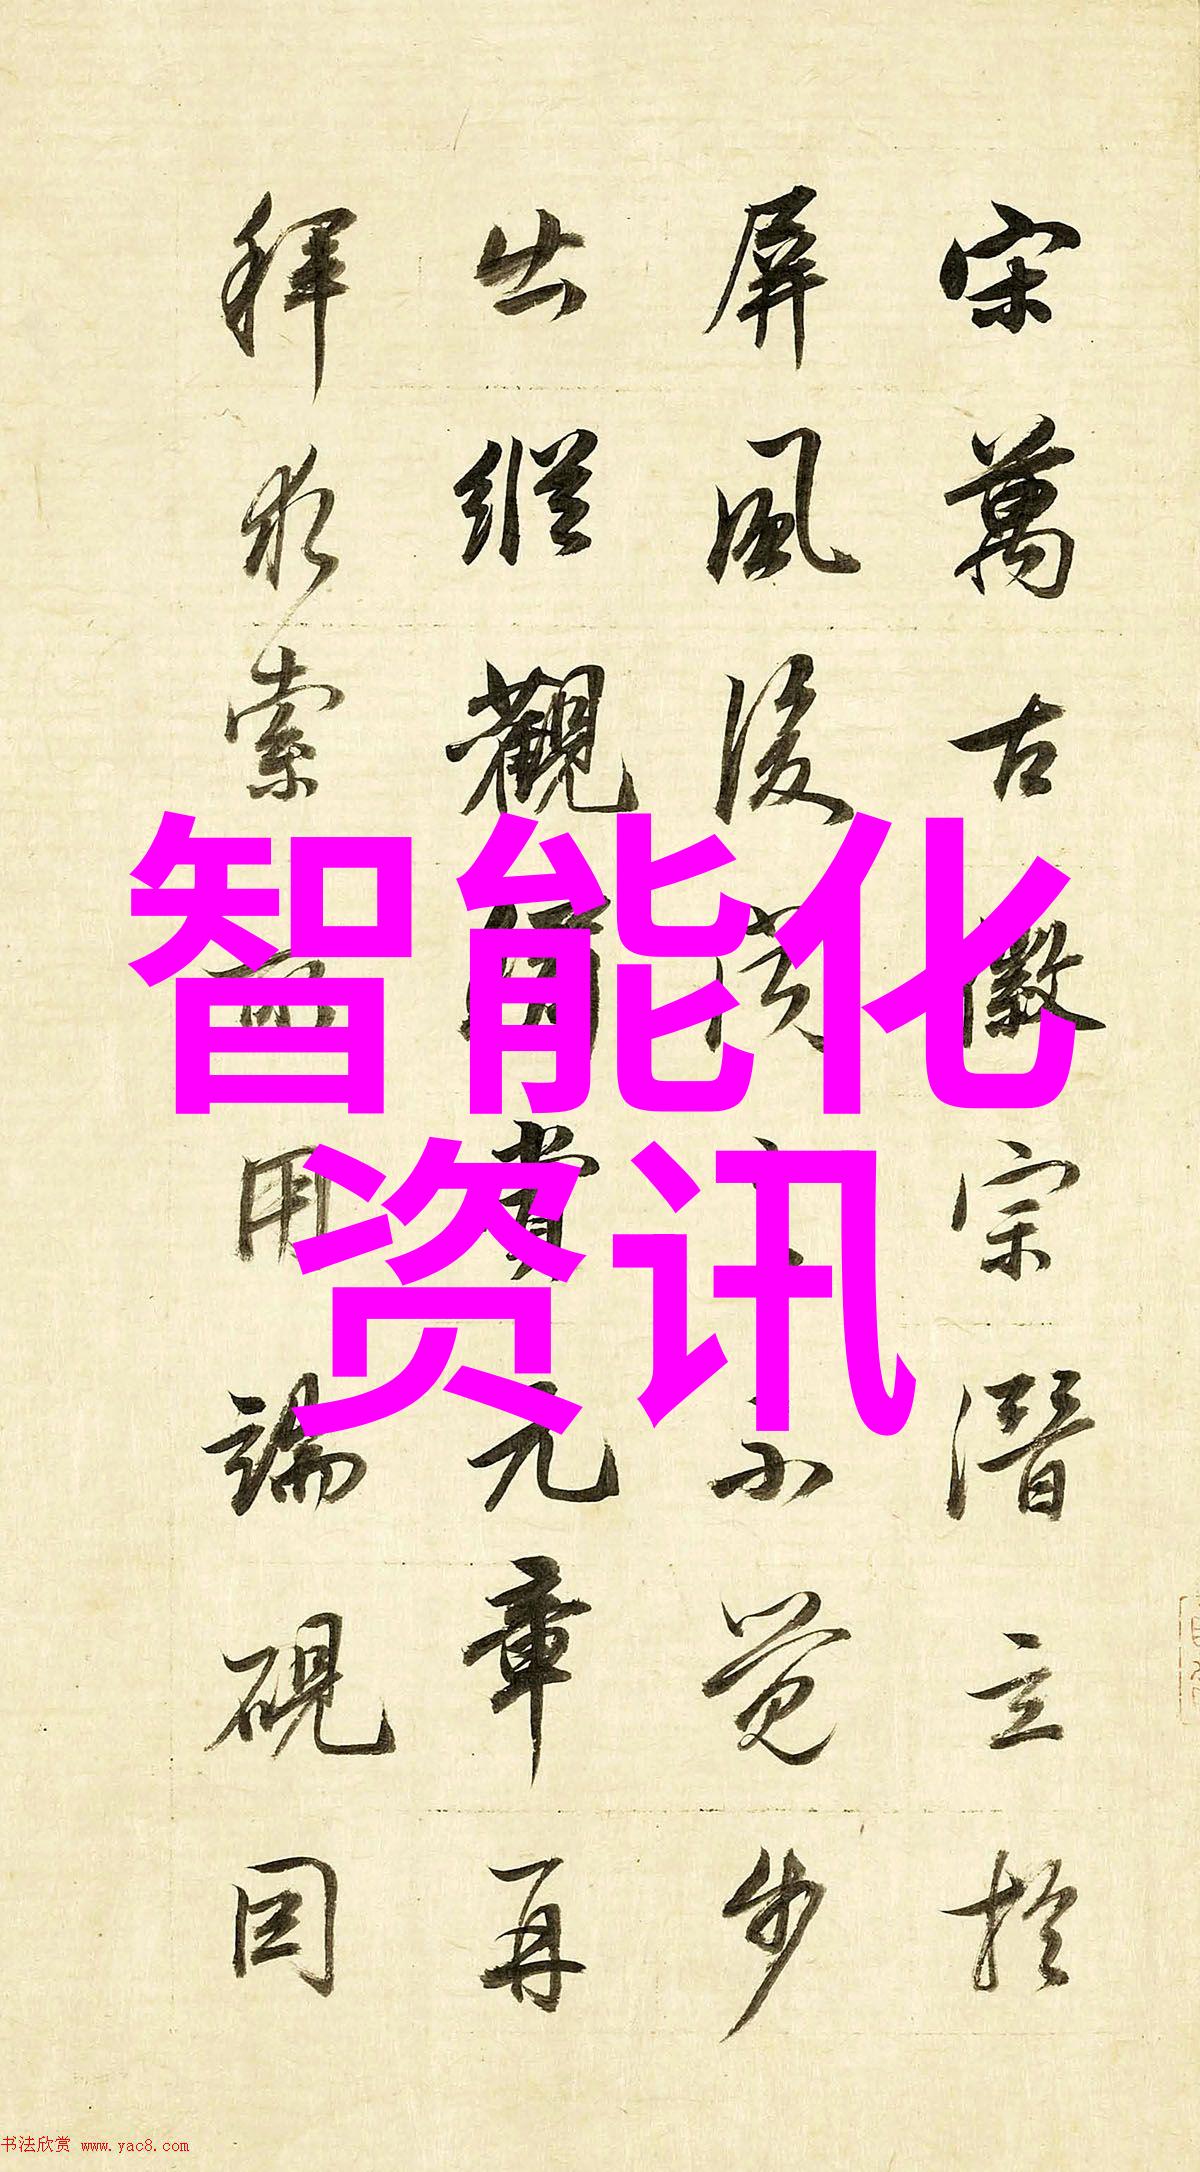 宋萬古徽宗潛立於
屏風後不覺步
出縱觀稱賞元章再
拜求索所用端硯因
智能化
资讯
书法欣赏 www.yac8.com